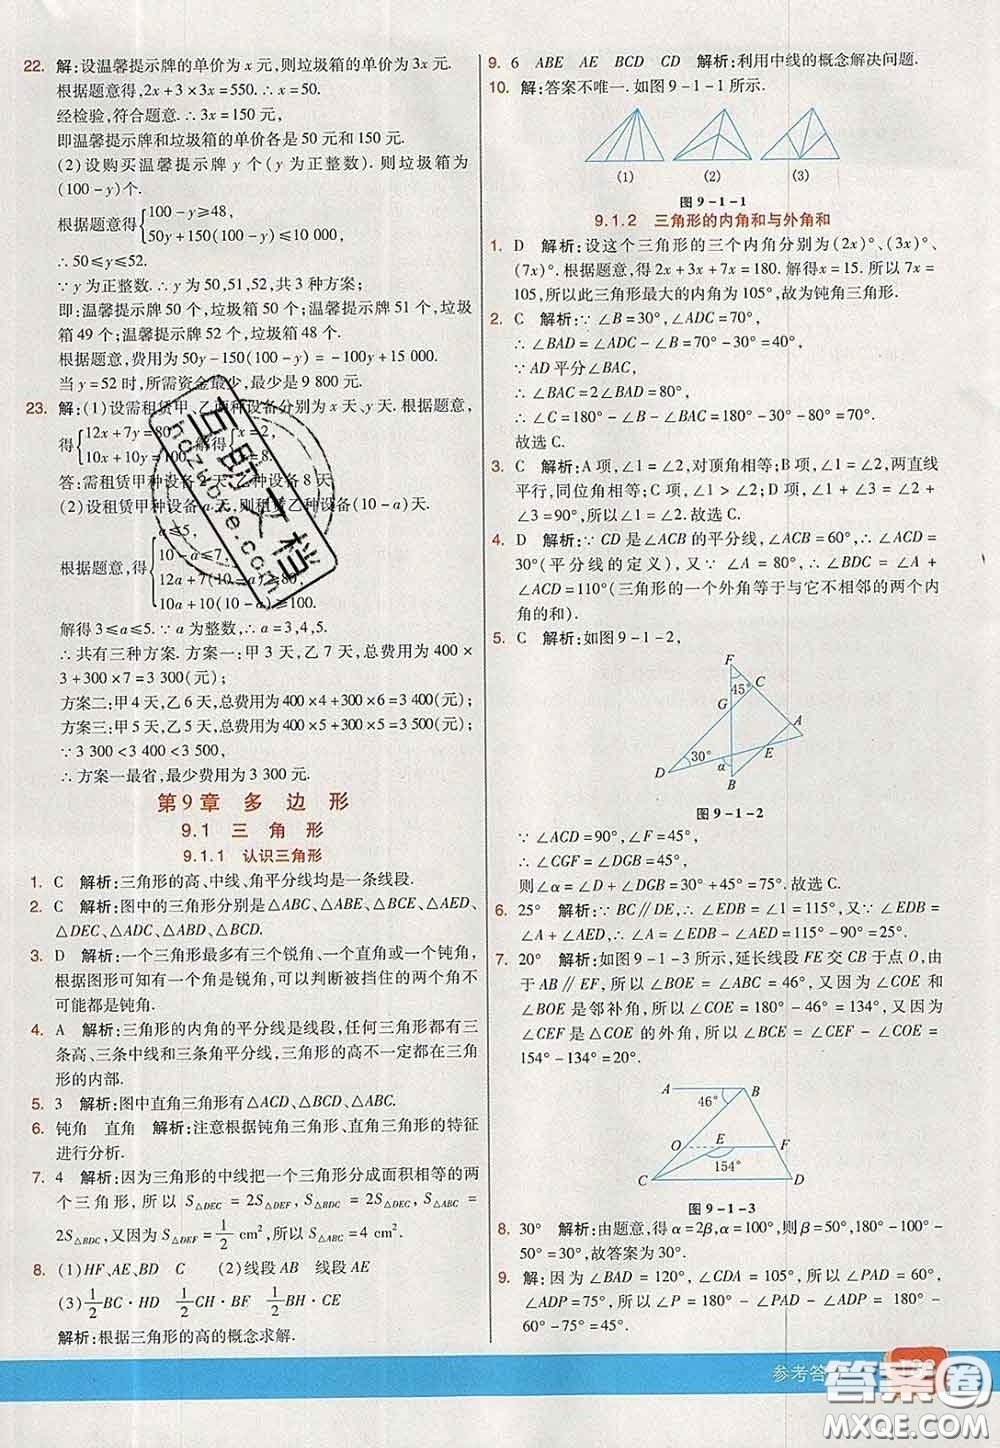 22. 解:设温馨提示牌的单价为 x 元,则垃圾箱的单价为 3x 元.
根据题意得,2x+3×3x=550.∴x=50.
经检验,符合题意.∴3x=150(元).
即温馨提示牌和垃圾箱的单价各是 50 元和 150 元.
(2)设购买温馨提示牌 y 个(y 为正整数).则垃圾箱为
(100-y)个.
根据题意得{100-y≥48,
50y+150(100-y)≤10 000.
∴50≤y≤52.
∵y 为正整数.∴y 为 50,51,52,共 3 种方案.
即:温馨提示牌 50 个,垃圾箱 50 个;温馨提示牌 51 个,垃圾
箱 49 个;温馨提示牌 52 个,垃圾箱 48 个.
根据题意,费用为 50y-150(100-y)=
当 y=52 时,所需资金最少,最少是 9 800 元.
23. 解:(1)设需租赁甲、乙两种设备分别为 x 天、y 天.根据题意,
得{12x+7y=80, 解得{x=2,
10x+10y=100. y=8.
答:需租赁甲种设备 2 天、乙种设备 8 天.
(2)设租赁甲种设备 a 天,则租赁乙种设备(10-a)天.
根据题意,得{a≤5,
10-a≤7,
12a+7(10-a)≥80,
10a+10(10-a)≥100.
解得 3≤a≤5.∵a 为整数,∴a=3,4,5.
∴共有三种方案.方案一:甲 3 天、乙 7 天,总费用为 400×
3+300×7=3 300(元);
方案二:甲 4 天,乙 6 天,总费用为 400×4+300×6=3 400(元);
方案三:甲 5 天,乙 5 天,总费用为 400×5+300×5=3 500(元);
∵3 300<3 400<3 500,
∴方案一最省,最少费用为 3 300 元.
第 9 章 多 边 形
9.1 三 角 形
9.1.1 认识三角形
1. C 解析:三角形的高、中线、角平分线均是一条线段.
2. C 解析:图中的三角形分别是△ABC、△ABE、△BCE、△AED、
△DEC、△ADC、△ABD、△BCD.
3. D 解析:一个三角形最多有三个锐角、一个直角或一个钝角,
根据图形可知有一个角是锐角,可以判断被挡住的两个角不
可能都是钝角.
4. A 解析:三角形的内角的平分线是线段,任何三角形都有三
条高、三条中线和三条角平分线,三角形的高不一定都在三角
形的内部.
5. 3 解析:图中直角三角形有△ACD、△BCD、△ABC.
6. 钝角 直角 解析:注意根据钝角三角形、直角三角形的特征
进行分析.
7. 4 解析:因为三角形的中线把一个三角形分成面积相等的两
个三角形,所以 S△DEC=2S△DEF,S△BDC=2S△DEC,S△ABC=
2S△BDC,又因为 S△DEF=1/2 cm²,所以 S△ABC=4 cm².
8. (1)HF、AE、BD C (2)线段 AE 线段 AE
(3)1/2BC·HD 1/2CH·BF 1/2BH·CE
解析:根据三角形的高的概念求解.
9. 6 ABE AE BCD CD 解析:利用中线的概念解决问题.
10. 解:答案不唯一.如图 9-1-1 所示.
(1) (2) (3)
图 9-1-1
9.1.2 三角形的内角和与外角和
1. D 解析:设这个三角形的三个内角分别为(2x)°、(3x)°、
(7x)°.根据题意,得 2x+3x+7x=180.解得x=15.所以 7x=
105,所以此三角形最大的内角为 105°,故为钝角三角形.
2. C 解析:∵∠B=30°,∠ADC=70°,
∴∠BAD=∠ADC-∠B=70°-30°=40°.
∵AD 平分∠BAC,
∴∠BAC=2∠BAD=80°.
∴∠C=180°-∠B-∠BAC=180°-30°-80°=70°.
故选 C.
3. C 解析:A 项,∠1=∠2,对顶角相等;B 项,∠1=∠2,两直线
平行,同位角相等;C 项,∠1>∠2;D 项,∠1+∠3=∠2+
∠3=90°,所以∠1=∠2.故选 C.
4. D 解析:∵CD 是∠ACB 的平分线,∠ACB=60°,∴∠ACD=
30°(平分线的定义),又∵∠A=80°,∴∠BDC=∠A+
∠ACD=110°(三角形的一个外角等于与它不相邻的两个内
角的和).
5. C 解析:如图 9-1-2,
F
45° C
G
A
30° E
D α
B
图 9-1-2
∵∠ACD=90°,∠F=45°,
∴∠CGF=∠DGB=45°.
则∠α=∠D+∠DGB=30°+45°=75°.故选 C.
6. 25° 解析:∵BC∥DE,∴∠EDB=∠1=115°,又∵∠EDB=
∠A+∠AED,∴∠A=∠EDB-∠AED=115°-90°=25°.
7. 20° 解析:如图 9-1-3 所示,延长线段 FE 交 CB 于点 O,由
于 AB∥EF,所以∠BOE=∠ABC=46°,又因为∠COE 和
∠BOE 是邻补角,所以∠COE=180°-46°=134°.又因为
∠CEF 是△COE 的外角,所以∠BCE=∠CEF-∠COE=
154°-134°=20°.
A B
46°
O E F
154°
C D
图 9-1-3
8. 30° 解析:由题意,得 α=2β,α=100°,则β=50°,180°-100°-
50°=30°,故答案为 30°.
9. 解:因为∠BAD=120°,∠CDA=105°,所以∠PAD=60°,
∠ADP=75°,所以∠P=180°-∠PAD-∠ADP=180°-
60°-75°=45°.
参考答
答案卷
MXQE.COM
互助文档
hdzwbxe.com